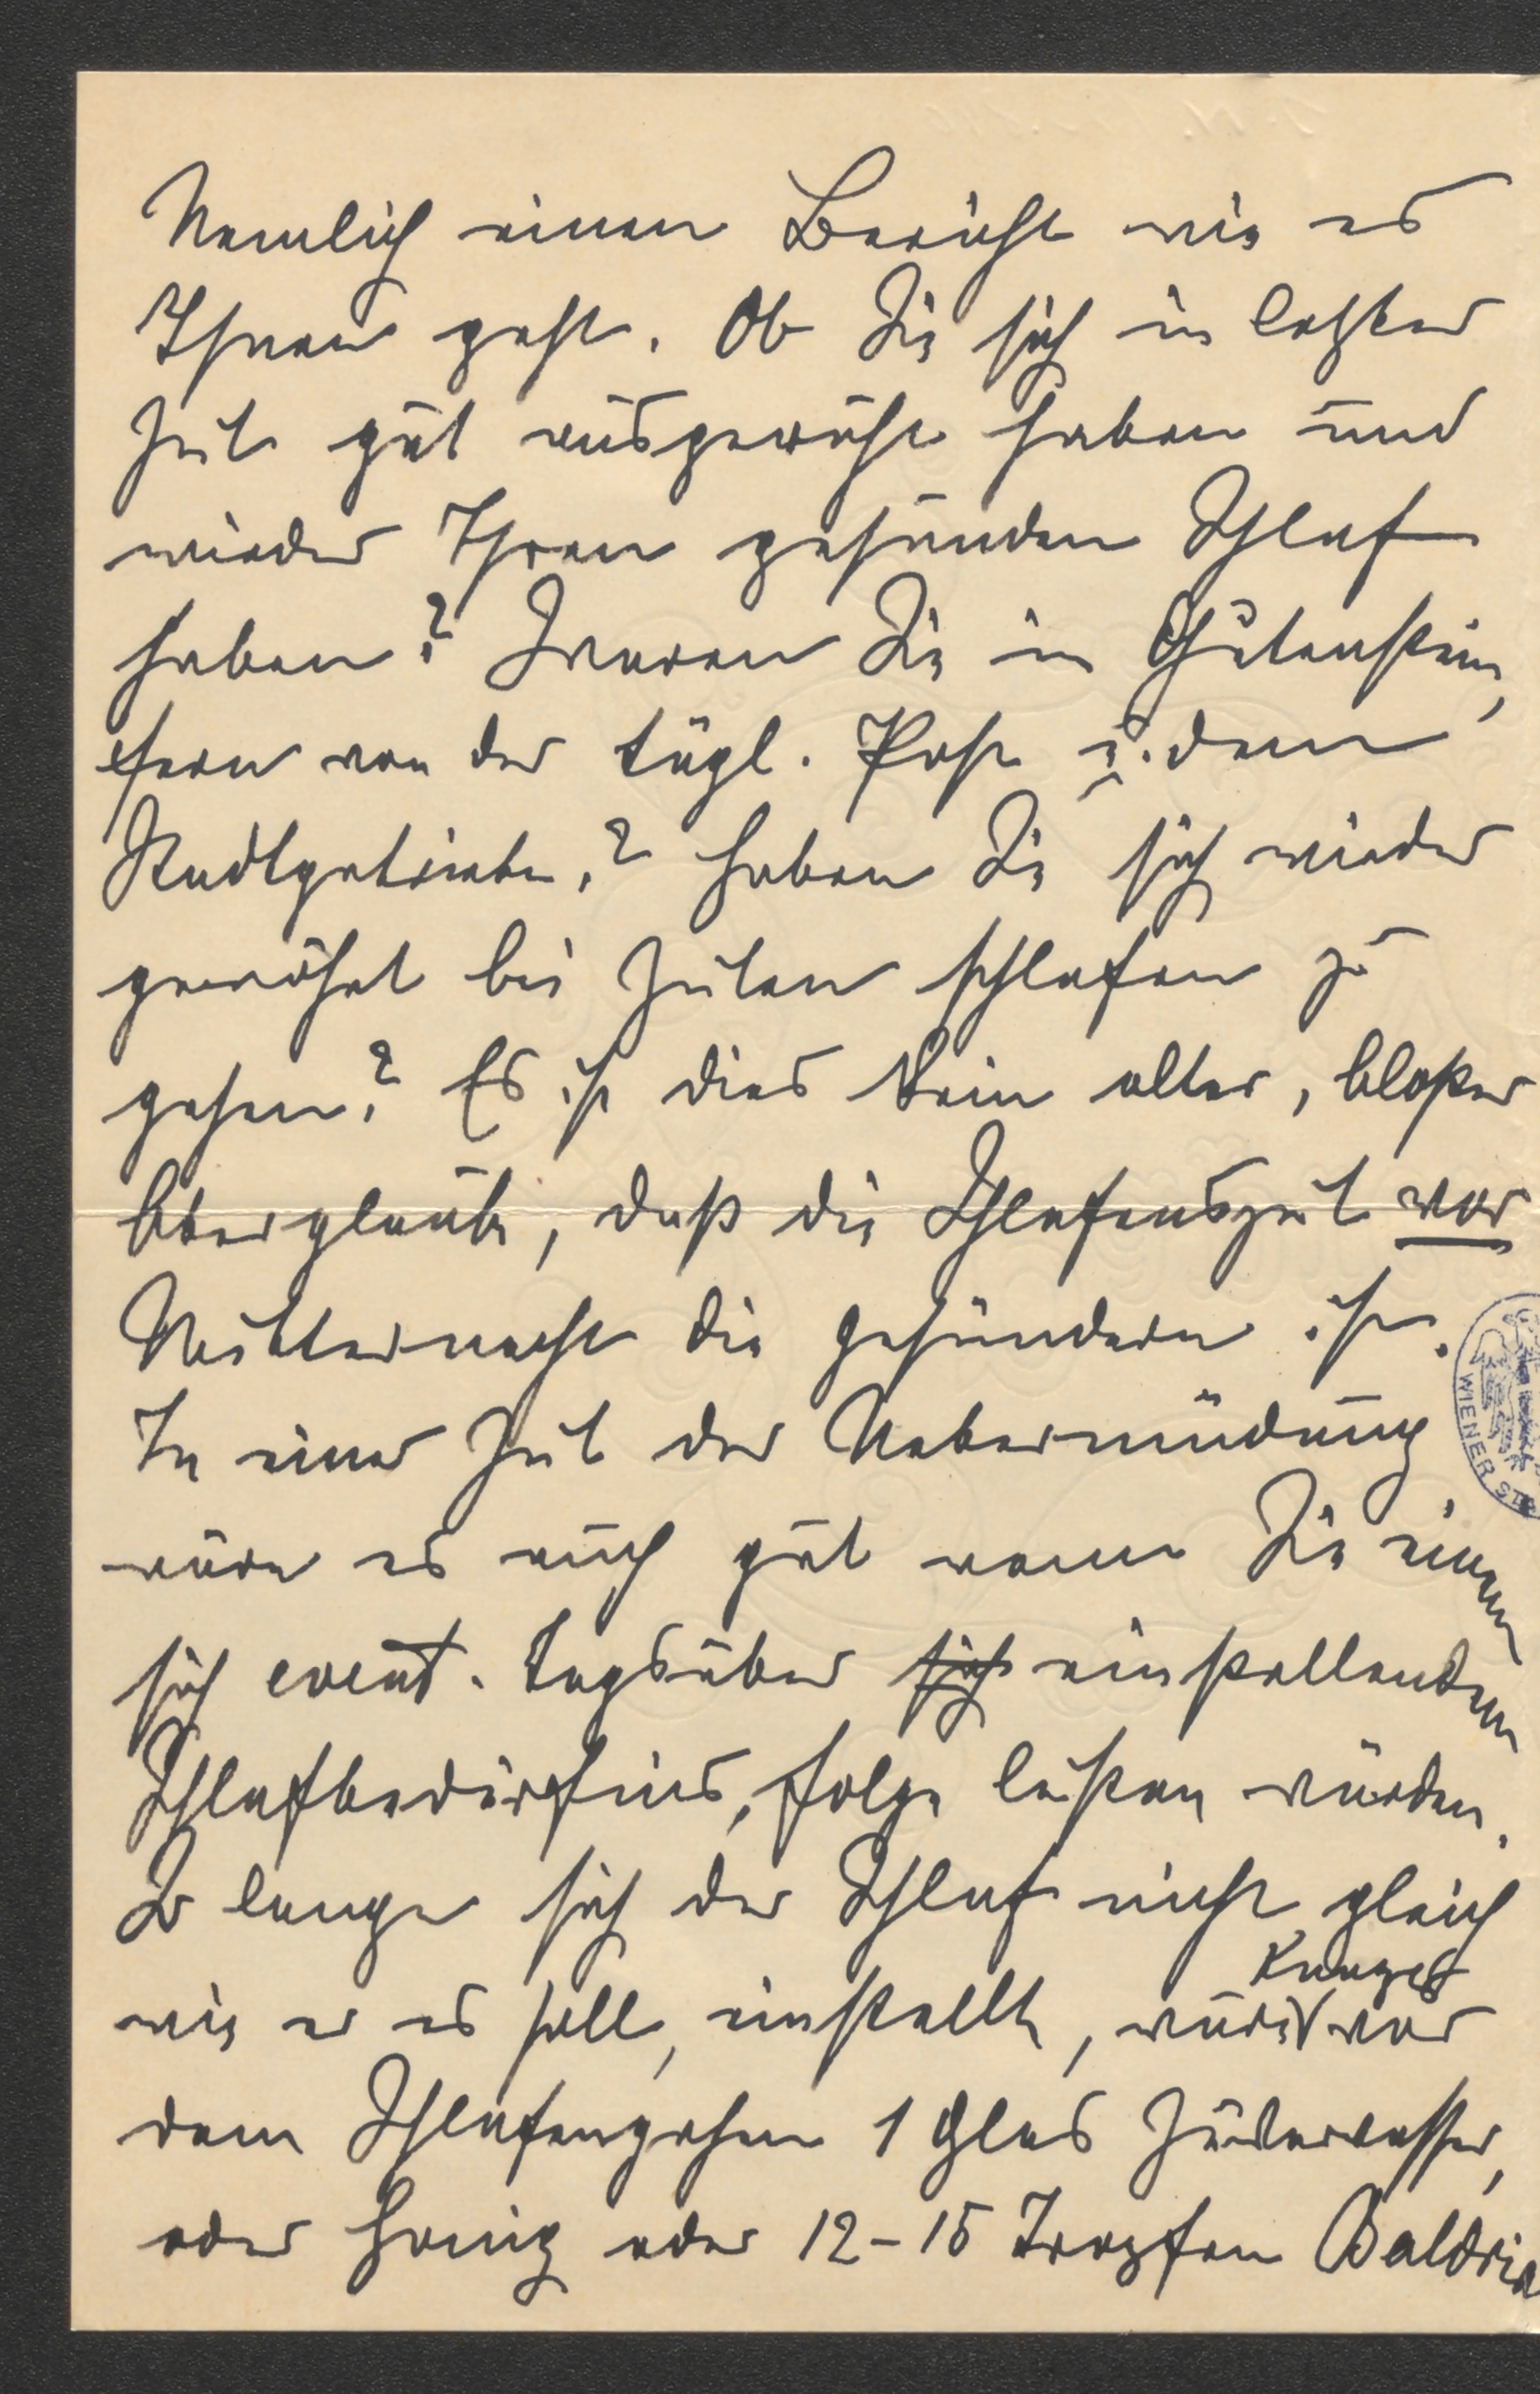 Nemlich einen Bericht wie es
Ihnen geht. Ob Sie sich in letzter
Zeit gut ausgeruht haben und
wieder Ihren gesunden Schlaf
haben? Waren Sie in Gutenstein,
fern von der tägl. Post u. dem
Stadtgetriebe? Haben Sie sich wieder
gewöhnt bei Zeiten schlafen zu
gehen? Es ist dies kein alter, bloßer
Aberglaube, daß die Schlafenszeit vor
Mitternacht die gesündere ist.
In einer Zeit der Uebermüdung
wäre es auch gut wenn Sie einem
sich event. tagsüber sich einstellenden
Schlafbedürfnis, folge leisten würden.
So lange sich der Schlaf nicht gleich
wie er es soll, einstellt, würde knapp vor
dem Schlafengehen 1 Glas Zuckerwasser,
oder Honig oder 12-15 Tropfen Baldria
WIENER ST